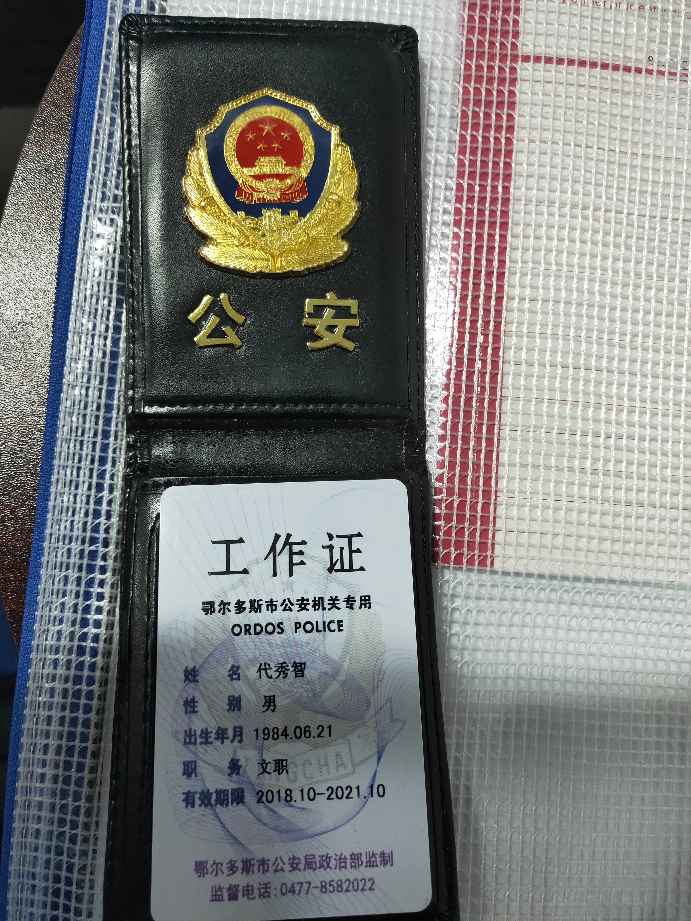 公安
工作证
鄂尔多斯市公安机关专用
ORDOS POLICE
姓 名 代秀智
性 别 男
出生年月 1984.06.21
职 务 文职
有效期限 2018.10-2021.10
鄂尔多斯市公安局政治部监制
监督电话:0477-8582022